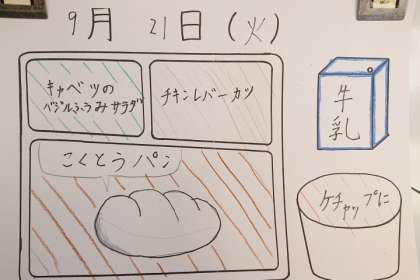 9月 21日 (火)
キャベツの
バジルふうみサラダ
チキンレバーカツ
牛
乳
こくとうパン
ケチャップに